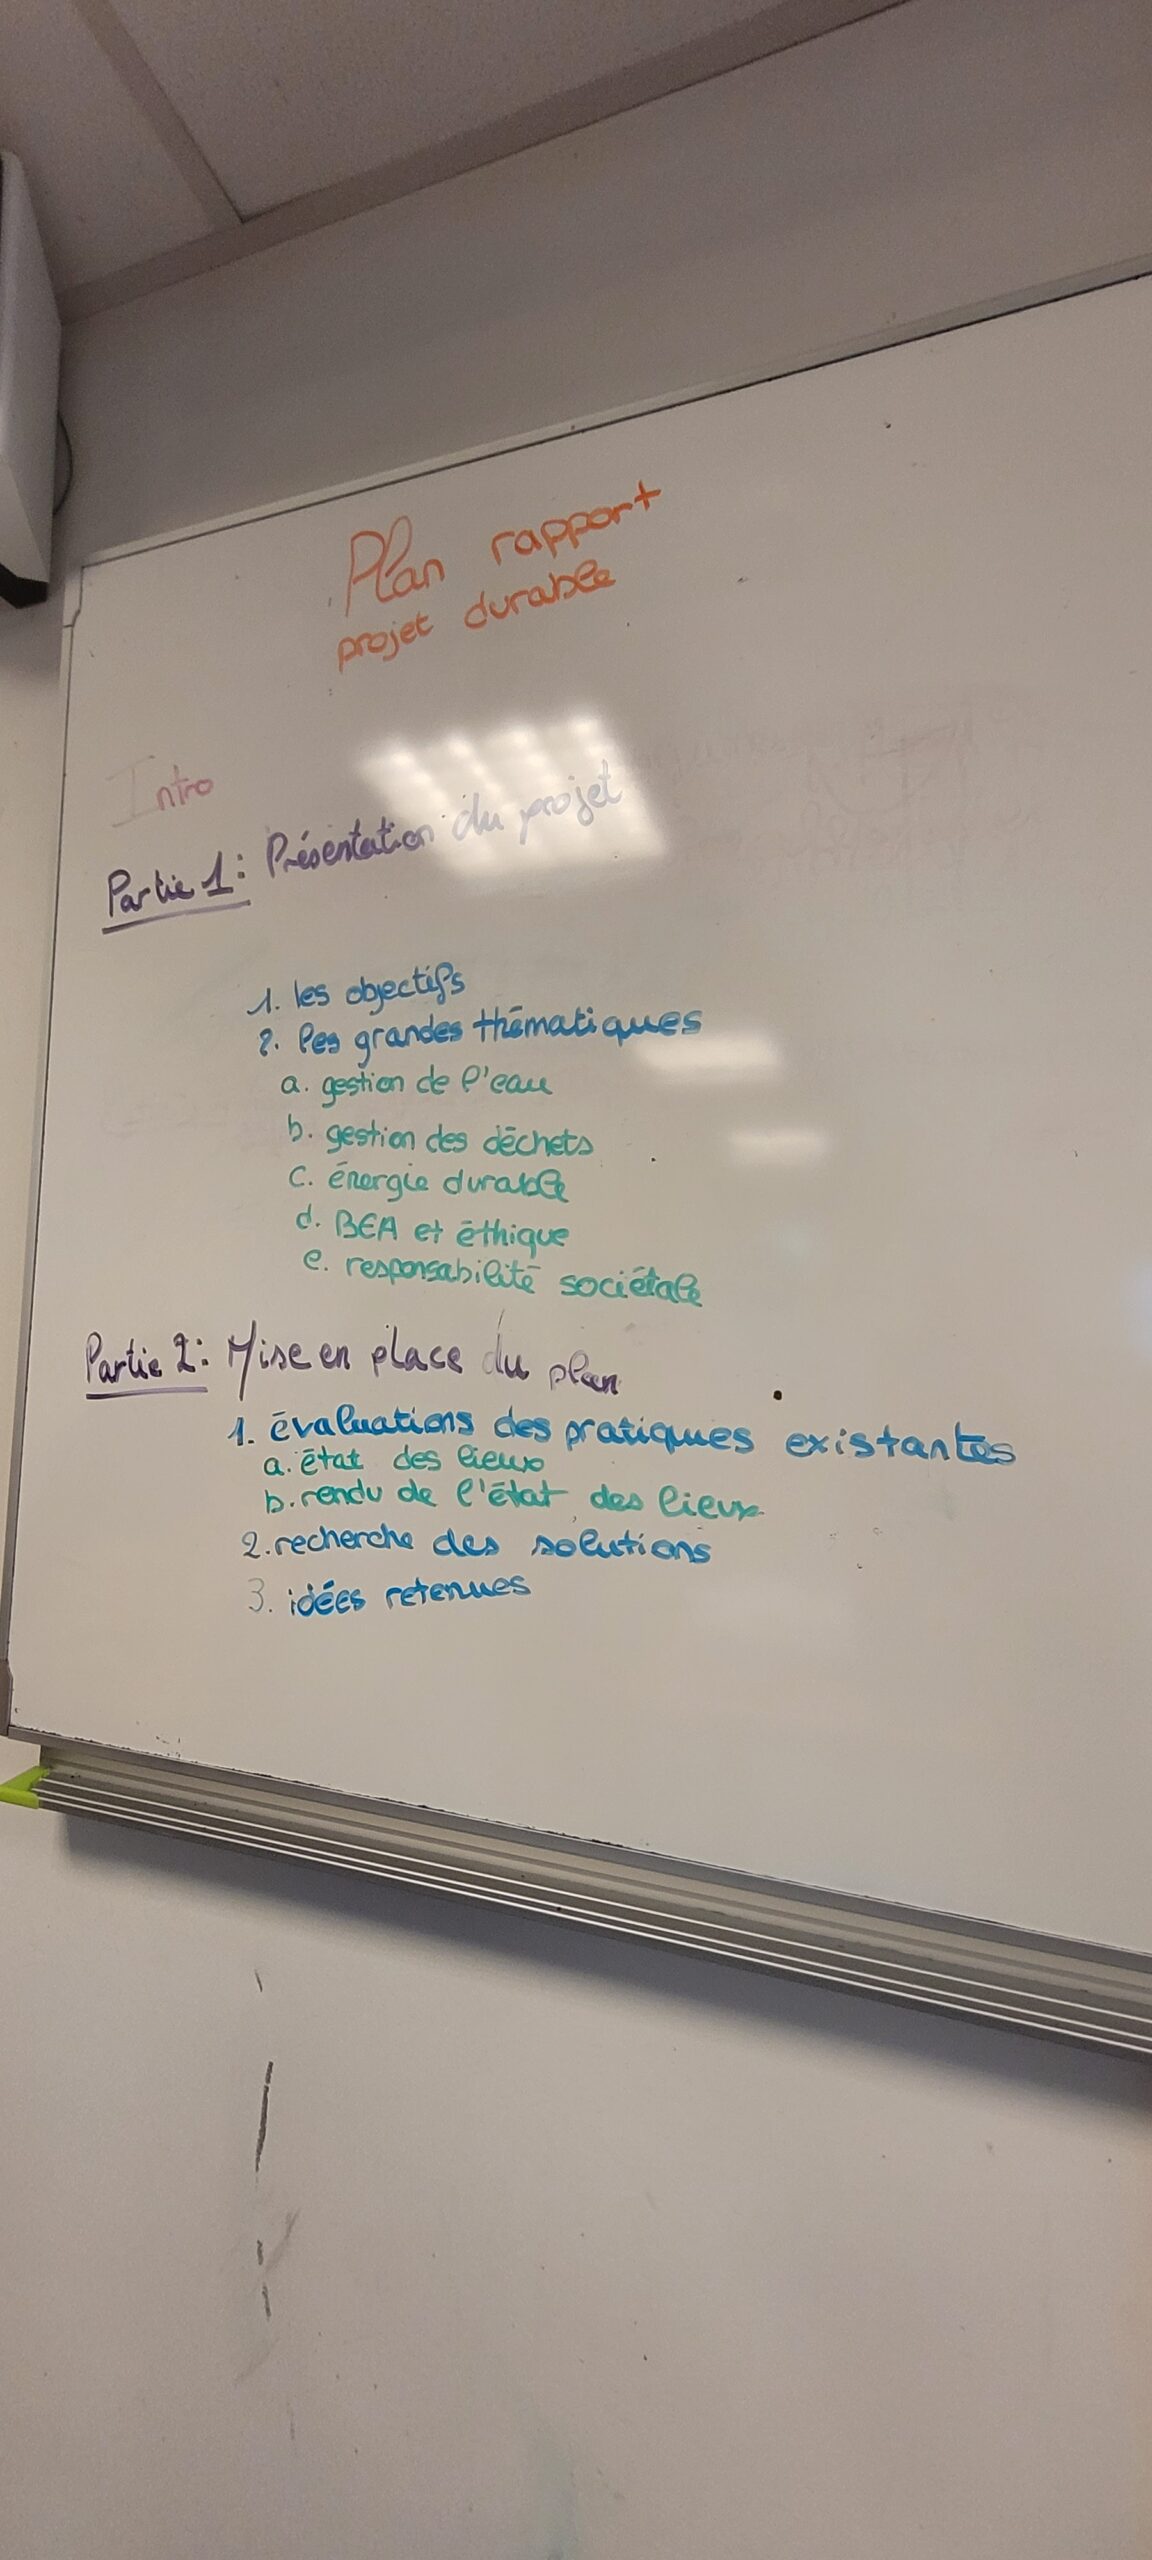 Plan rapport
projet durable
Intro
Partie 1: Présentation du projet
1. les objectifs
2. les grandes thématiques
a. gestion de l'eau
b. gestion des déchets
c. énergie durable
d. BEA et éthique
e. responsabilité sociétale
Partie 2: Mise en place du plan
1. évaluations des pratiques existantes
a. état des lieux
b. rendu de l'état des lieux
2. recherche des solutions
3. idées retenues